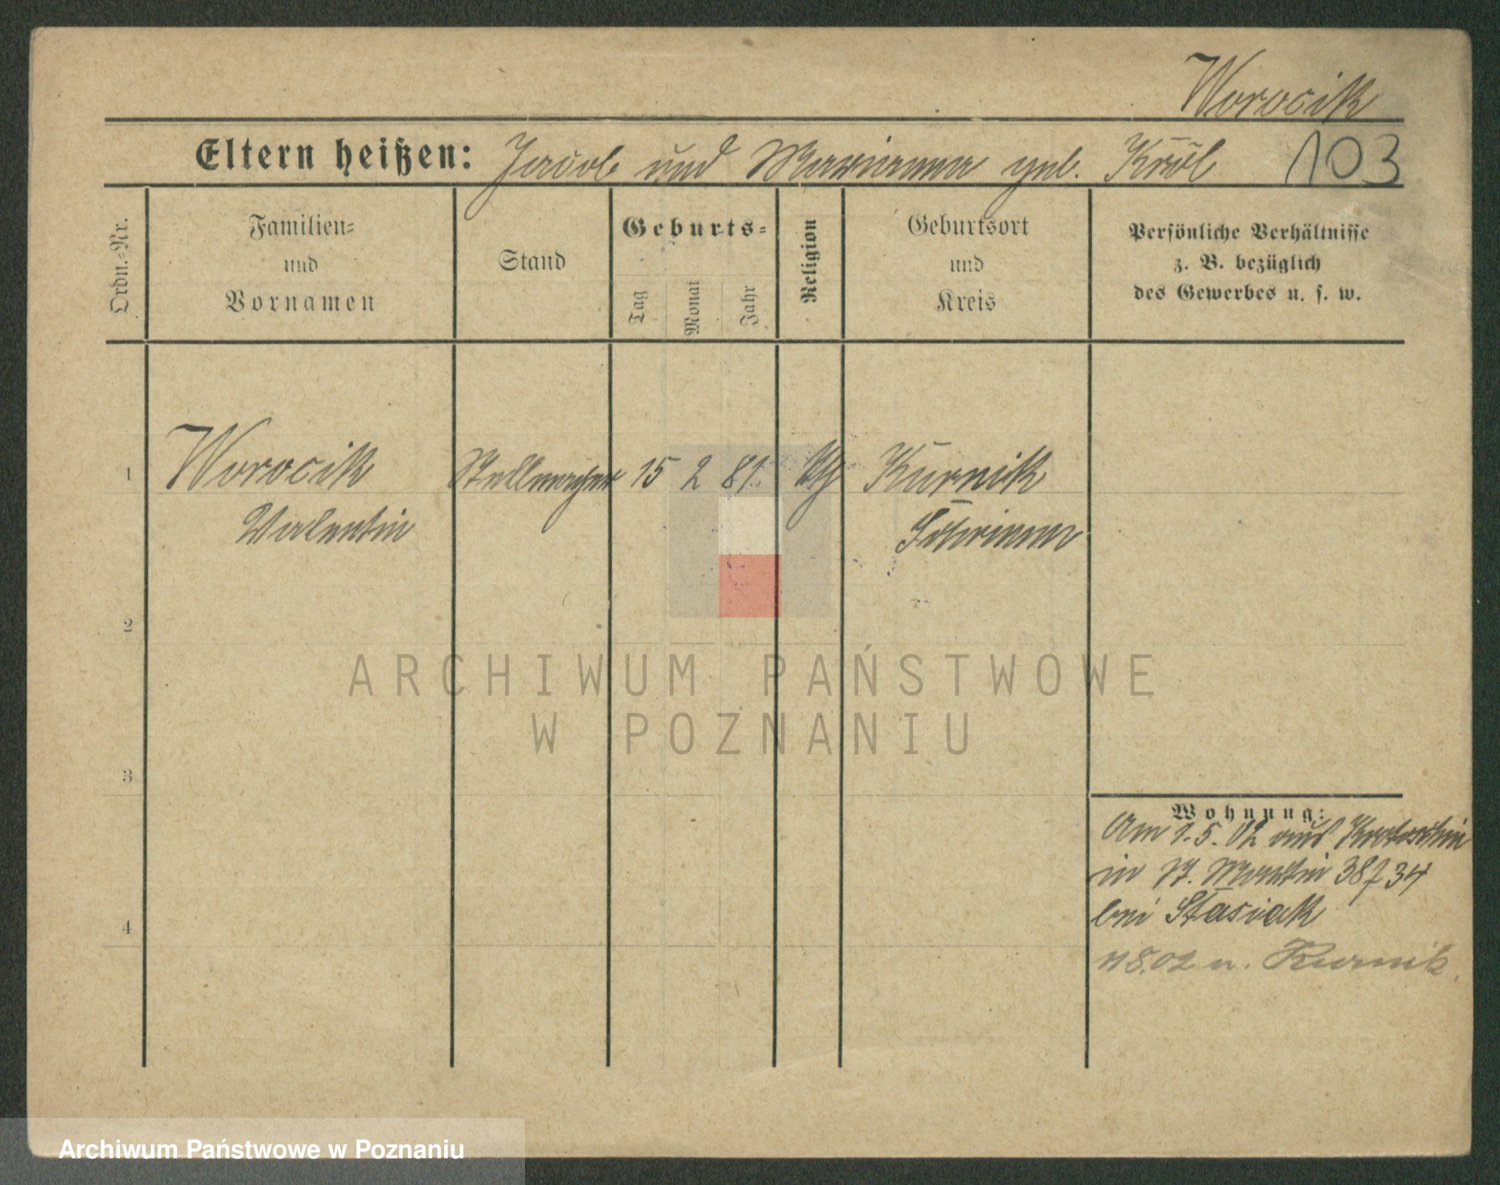 Worocik
Eltern heißen: Jacob und Marianna geb. Król 103
Ordn.-Nr.
Familien-
und
Vornamen
Stand
Geburts-
Tag
Monat
Jahr
Religion
Geburtsort
und
Kreis
Persönliche Verhältnisse
z. B. bezüglich
des Gewerbes u. s. w.
1 Worocik Stellmacher 15 2 81. Kurnik
Valentin Schrimm
2
3
4
Wohnung:
Am 1.5.02 aus Krotoschin
in St. Martin 38
bei Stasiak
8.02 n. Kurnik
ARCHIWUM PAŃSTWOWE
W POZNANIU
Archiwum Państwowe w Poznaniu